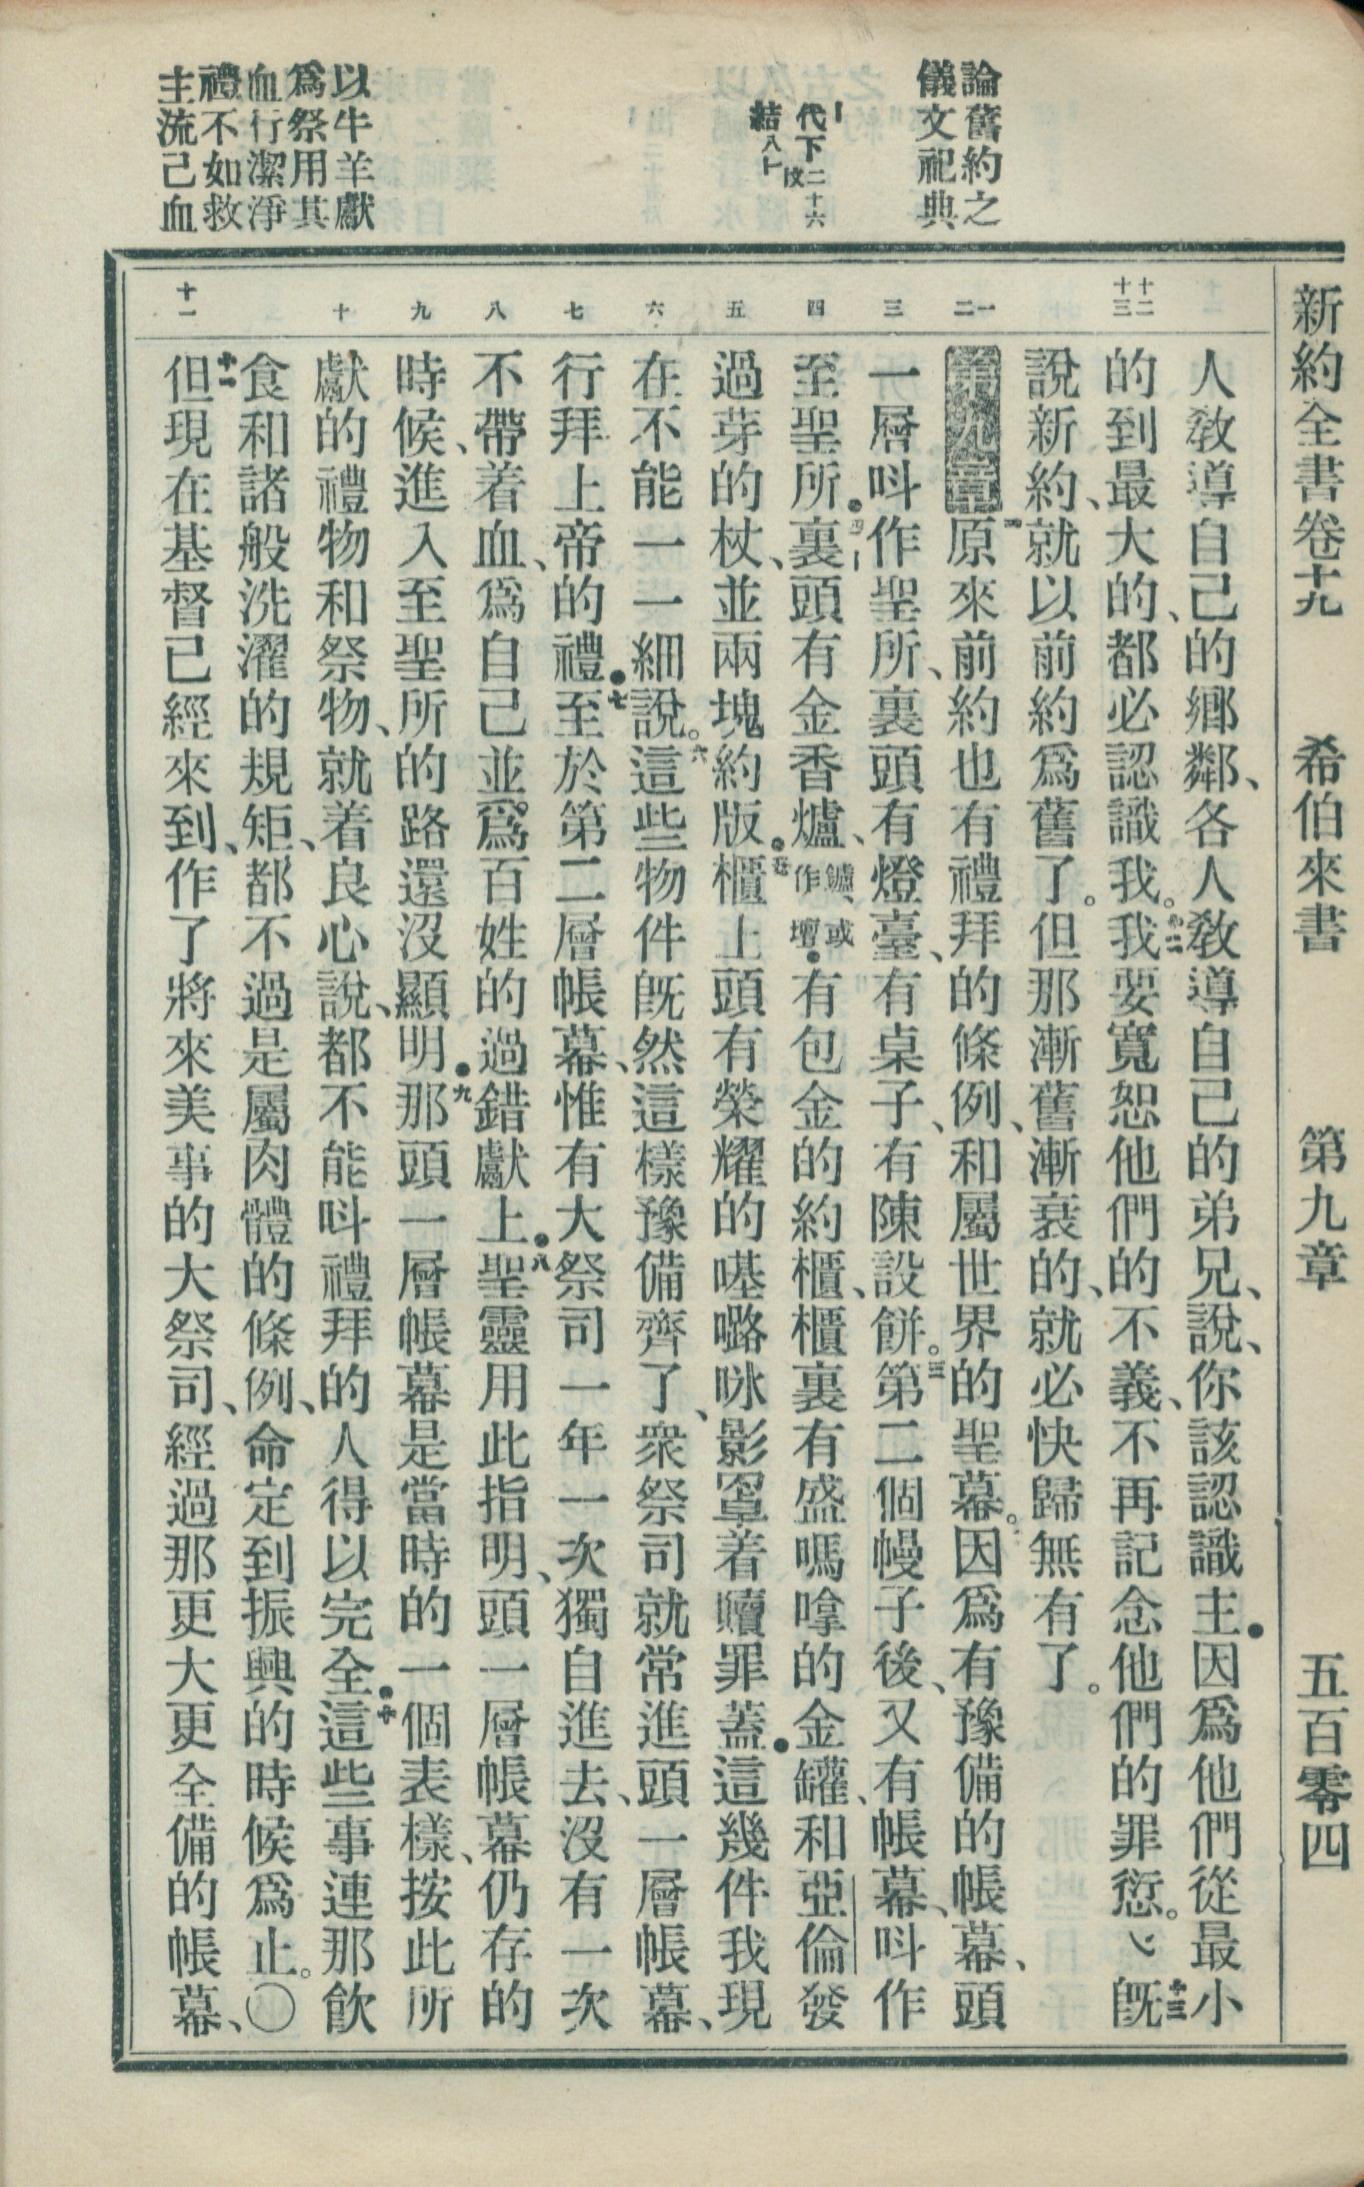 新約全書卷十九 希伯來書 第九章 五百零四
論舊約之
儀文祀典
代下二十六
結八十
以牛羊獻
爲祭用其
血行潔淨
禮不如救
主流己血
十二
十三
一
二
三
四
五
六
七
八
九
十
十一
人敎導自己的鄉鄰、各人敎導自己的弟兄、說、你該認識主●因爲他們從最小
的到最大的、都必認識我。十二我要寬恕他們的不義、不再記念他們的罪愆。十三旣
說新約、就以前約爲舊了。但那漸舊漸衰的、就必快歸無有了。
第九章原來前約也有禮拜的條例、和屬世界的聖幕。因爲有豫備的帳幕、頭
一層呌作聖所、裏頭有燈臺、有桌子、有陳設餅。三第二個幔子後、又有帳幕、呌作
至聖所●四裏頭有金香爐、鑪、或作壇●有包金的約櫃、櫃裏有盛嗎嗱的金罐、和亞倫發
過芽的杖、並兩塊約版●五櫃上頭有榮耀的𠼻㗉咏影罩着贖罪蓋●這幾件我現
在不能一一細說。六這些物件旣然這樣豫備齊了、衆祭司就常進頭一層帳幕、
行拜上帝的禮●七至於第二層帳幕、惟有大祭司一年一次獨自進去、沒有一次
不帶着血、爲自己並爲百姓的過錯獻上●八聖靈用此指明、頭一層帳幕仍存的
時候、進入至聖所的路還沒顯明●九那頭一層帳幕是當時的一個表樣、按此所
獻的禮物和祭物、就着良心說、都不能呌禮拜的人得以完全●十這些事連那飮
食和諸般洗濯的規矩、都不過是屬肉體的條例、命定到振興的時候爲止。○
十一但現在基督已經來到、作了將來美事的大祭司、經過那更大更全備的帳幕、